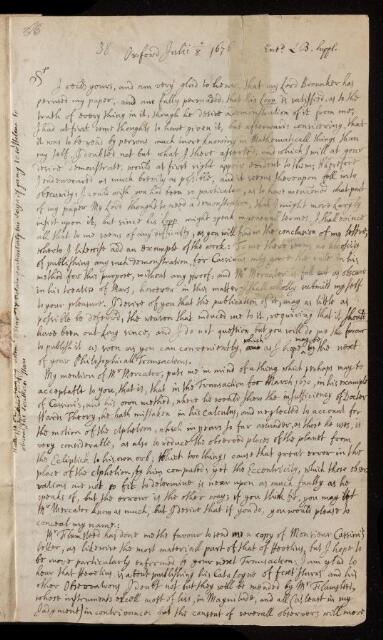 38
Oxford Julii 8 1676 Ent.d LB. Suppl.
Sr
I receivd yours, and am very glad to heare, that my Lord Brouncker has
perused my paper, and am fully perswaded that his Lopp is satisfied, as to the
truth of every thing in it, though he desire a demonstration of it from me,
I had at first some thoughts to have given it, but afterwards considering, that
it was to be read by persons much more knowing in Mathematicall things than
my self, I doubted not but what I there assert, and which I will at your
desire demonstrate, would at first sight appeare evident to them, therefore
I endeavoured as much brevity as possible, and it seems thereupon fell into
obscurity. I could wish you had been so particular, as to have mentioned what part
of my paper My Lord thought to need a demonstration, that I might more largely
insist upon it, but since his Lopp might speak in generall termes, I shall evince
all that to me seems of any difficulty, as you will find in the conclusion of my letter,
whereto I likewise add an example of the work: To me there seems no necessity
of publishing any such demonstration, for Cassini only gave the rule in his
method for this purpose, without any proof, and Mr Mercator is full as obscure
in his treatise of Mars, however in this matter I shall wholy submitt my self
to your pleasure. I desire of you that the publication of it, may as little as
possible be deferred, the reason that induced me to it, requiring that it should
have been out long since, and I do not question but you will do me the favour
to publish it as soon as you can conveniently, which as I hope may be by the next
of your Philosophicall Transactions.
My mention of Mr Mercator, puts me in mind of a thing which perhaps may be
acceptable to you, that is, that in the Transaction for March 1670, in his example
of Cassinis, and his own method, where he would shew the insufficiency of Doctor
Wards Theory, he hath mistaken in his calculus, and neglected to account for
the motion of the Aphelion, which in proofs so far asunder, as those he uses, is
very considerable, as also to reduce the observed places of the planet from
the Ecliptick to his own orb, which two things cause that great errour in the
place of the Aphelion, by him computed, yet the Eccentricity, which those obser
vations are not so fit to determine is neer upon as much faulty as he
speaks of, but the errour is the other way; if you think fit, you may let
Mr Mercator know as much, but I desire that if you do, you would please to
conceal my name:
Mr Flamsteed has done me the favour to send me a copy of Monsieur Cassini's
letter, as likewise the most materiall part of that of Hevelius, but I hope to
be more particularly informed by your next Transaction. I am glad to
hear that Hevelius is about publishing his Catalogue of fixt starrs and his
other Observations I doubt not but they will be mended by Mr Flamsteed,
whose instruments excell most of his, in Magnitude, and all (at least in my
Judgment) in contrivance: but the consent of severall observers will more